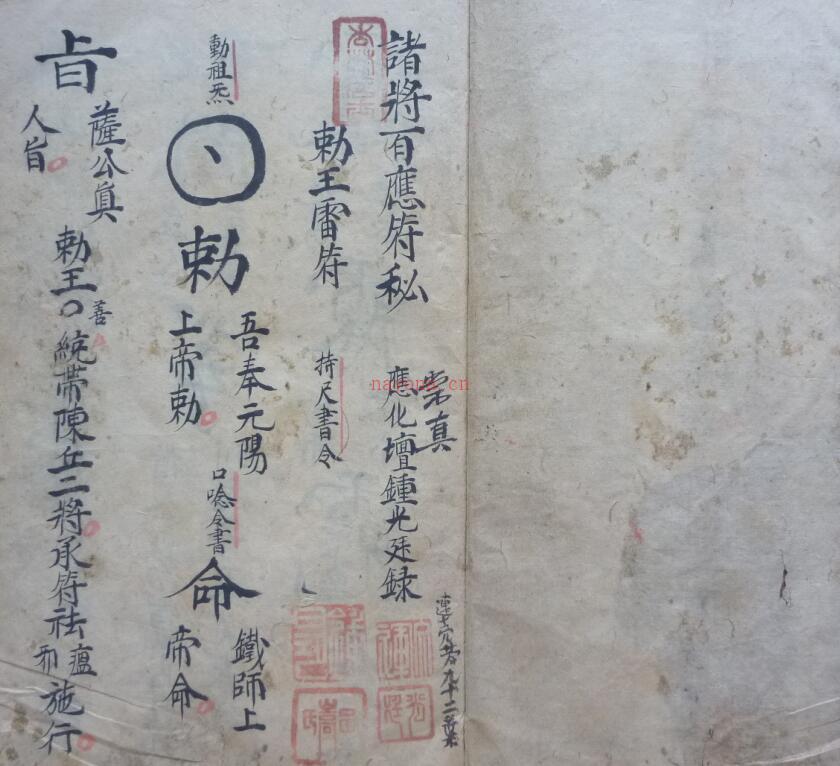 諸將百應符秘
崇真
應化壇鍾光廷録
勅王雷符
持尺書令
動祖炁
勅
吾奉元陽
上帝勅
口唸令書
命
鐵師上
帝命
旨
薩公真
人旨
勅王善統帶陳丘二將承符祛瘟邪施行
nayona.cn